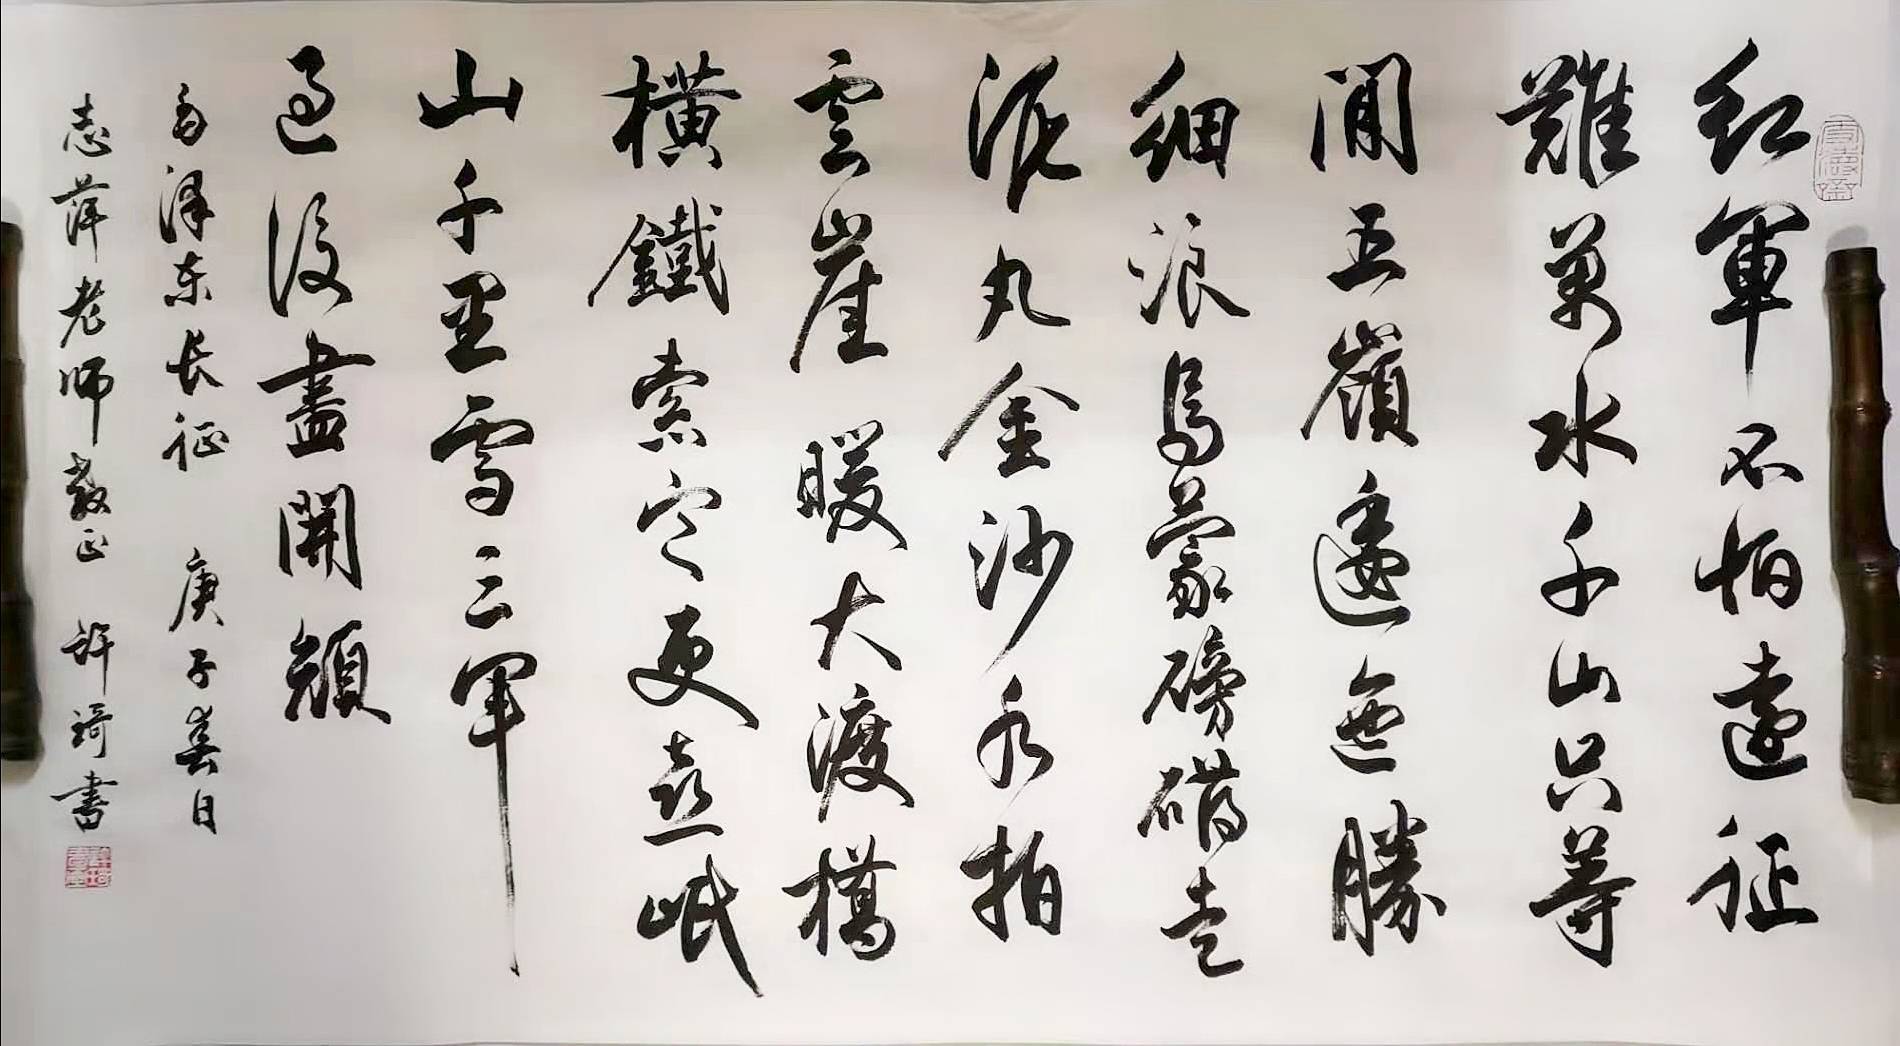 紅軍不怕遠征
難萬水千山只等
閒五嶺逶迤騰
細浪烏蒙磅礴走
泥丸金沙水拍
雲崖暖大渡橋
橫鐵索寒更喜岷
山千里雪三軍
過後盡開顏
毛澤东长征 庚子春日
志萍老师教正 许琦書